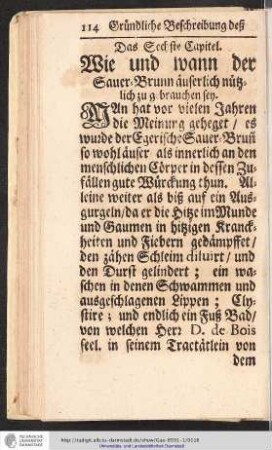 114 Gründliche Beschreibung deß
Das Sechste Capitel.
Wie und wann der
Sauer-Brunn äuserlich nütz-
lich zu gebrauchen sey.
MAn hat vor vielen Jahren
die Meinung geheget / es
wurde der Egerische Sauer-Bruñ
so wohl äuser als innerlich an den
menschlichen Cörper in dessen Zu-
fällen gute Würckung thun. Al-
leine weiter als biß auf ein Aus-
gurgeln / da er die Hitze im Munde
und Gaumen in hitzigen Kranck-
heiten und Fiebern gedämpffet /
den zähen Schleim diluirt / und
den Durst gelindert; ein wa-
schen in denen Schwammen und
ausgeschlagenen Lippen; Cly-
stire; und endlich ein Fuß Bad /
von welchen Herr D. de Bois
seel. in seinem Tractätlein von
dem